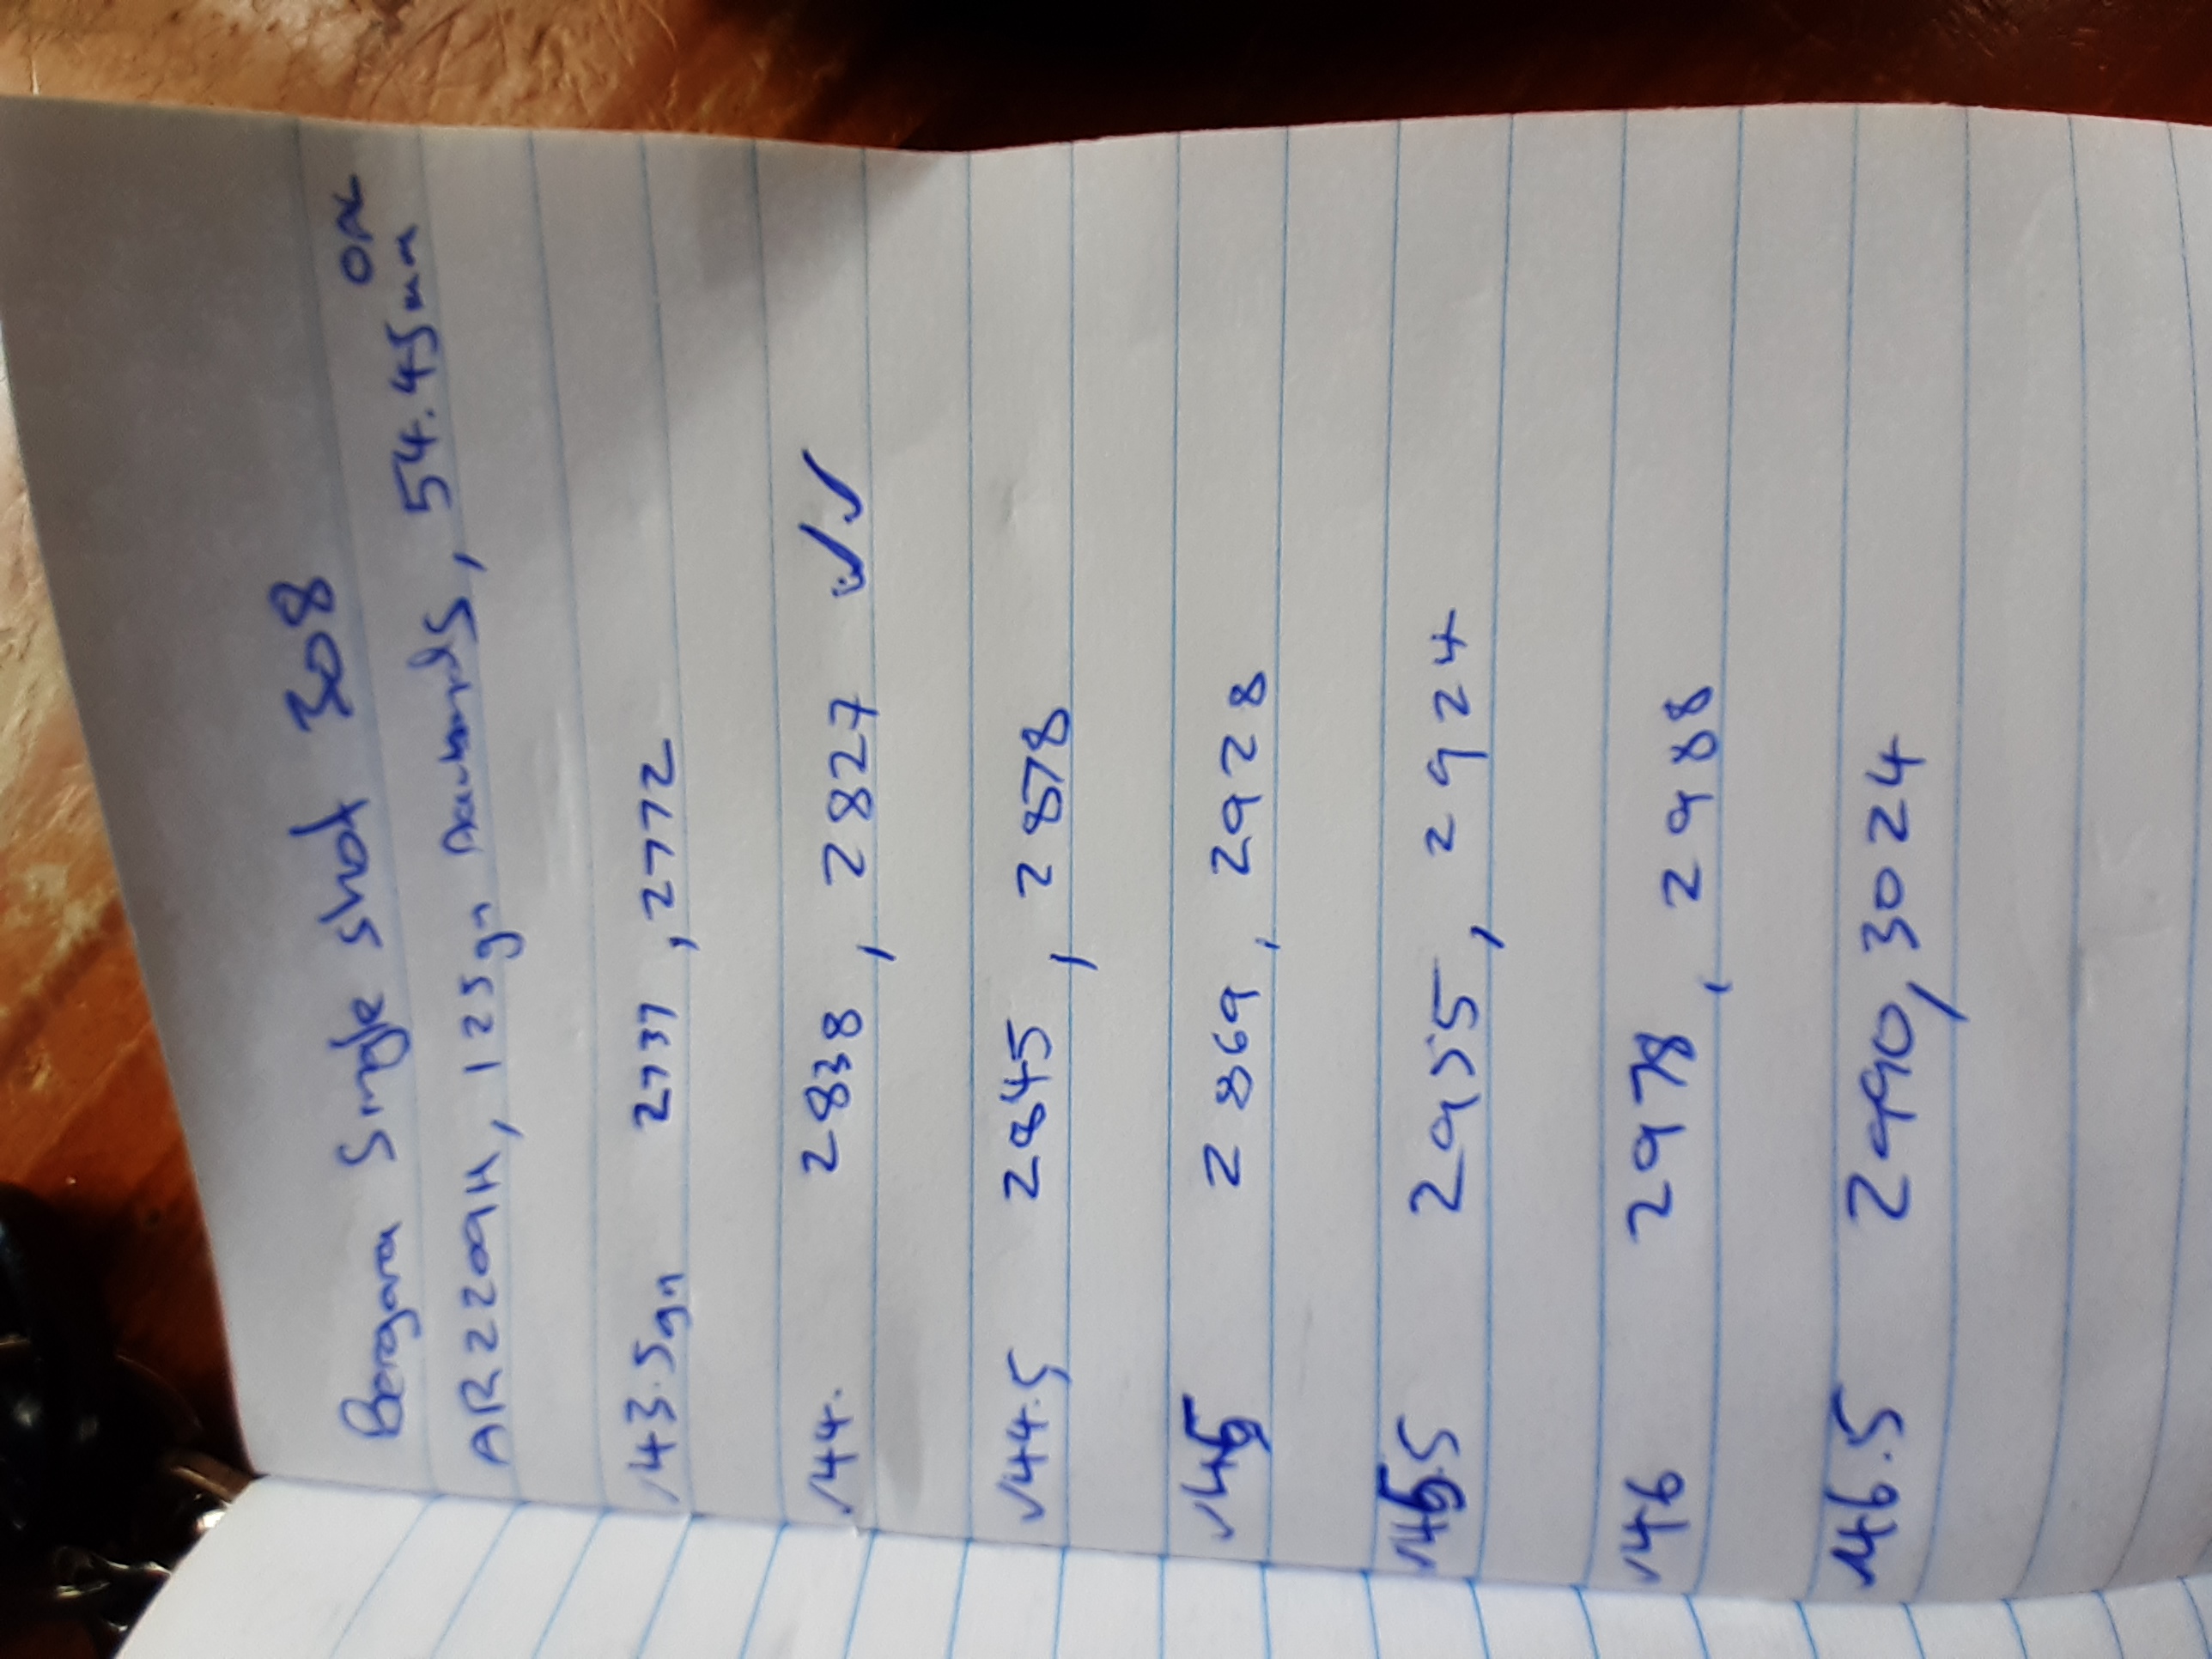 Beregara Single shot 308
AR2209H, 125gn , 54.45mm OAL
✓43.5gn 2737, 2772
✓44. 2838, 2827 ✓✓
✓44.5 2845, 2878
✓45 2869, 2928
✓45.5 2955, 2924
✓46 2978, 2988
✓46.5 2990, 3024